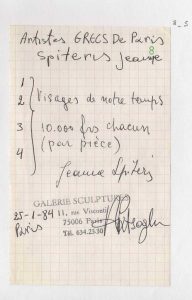 8-5
Artistes GRECS De Paris
Spiteris Jeanne
8
1
2 Visages de notre temps
3 10.000 frs chacun
4 (par pièce)
Jeanne Spiteris
GALERIE SCULPTURES
25-1-84 11, rue Visconti
Paris 75006 Paris
Tél. 634.25.30